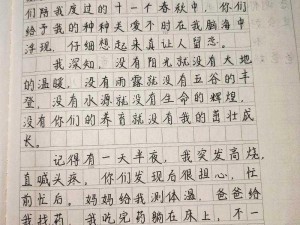 们陪我度过的十一个春秋中，你们
给予我的种种关爱不时在我脑海中
浮现，仔细想起来真让人留恋。
我深知，没有阳光就没有大地
的温暖，没有雨露就没有五谷的丰
登，没有水源就没有生命的辉煌，
没有你们的养育就没有我的茁壮成
长。
记得有一天半夜，我突发高烧，
直喊头疼。你们发现后很担心，忙
前忙后。妈妈给我测体温，爸爸给
我找药，我吃完药躺在床上，不一